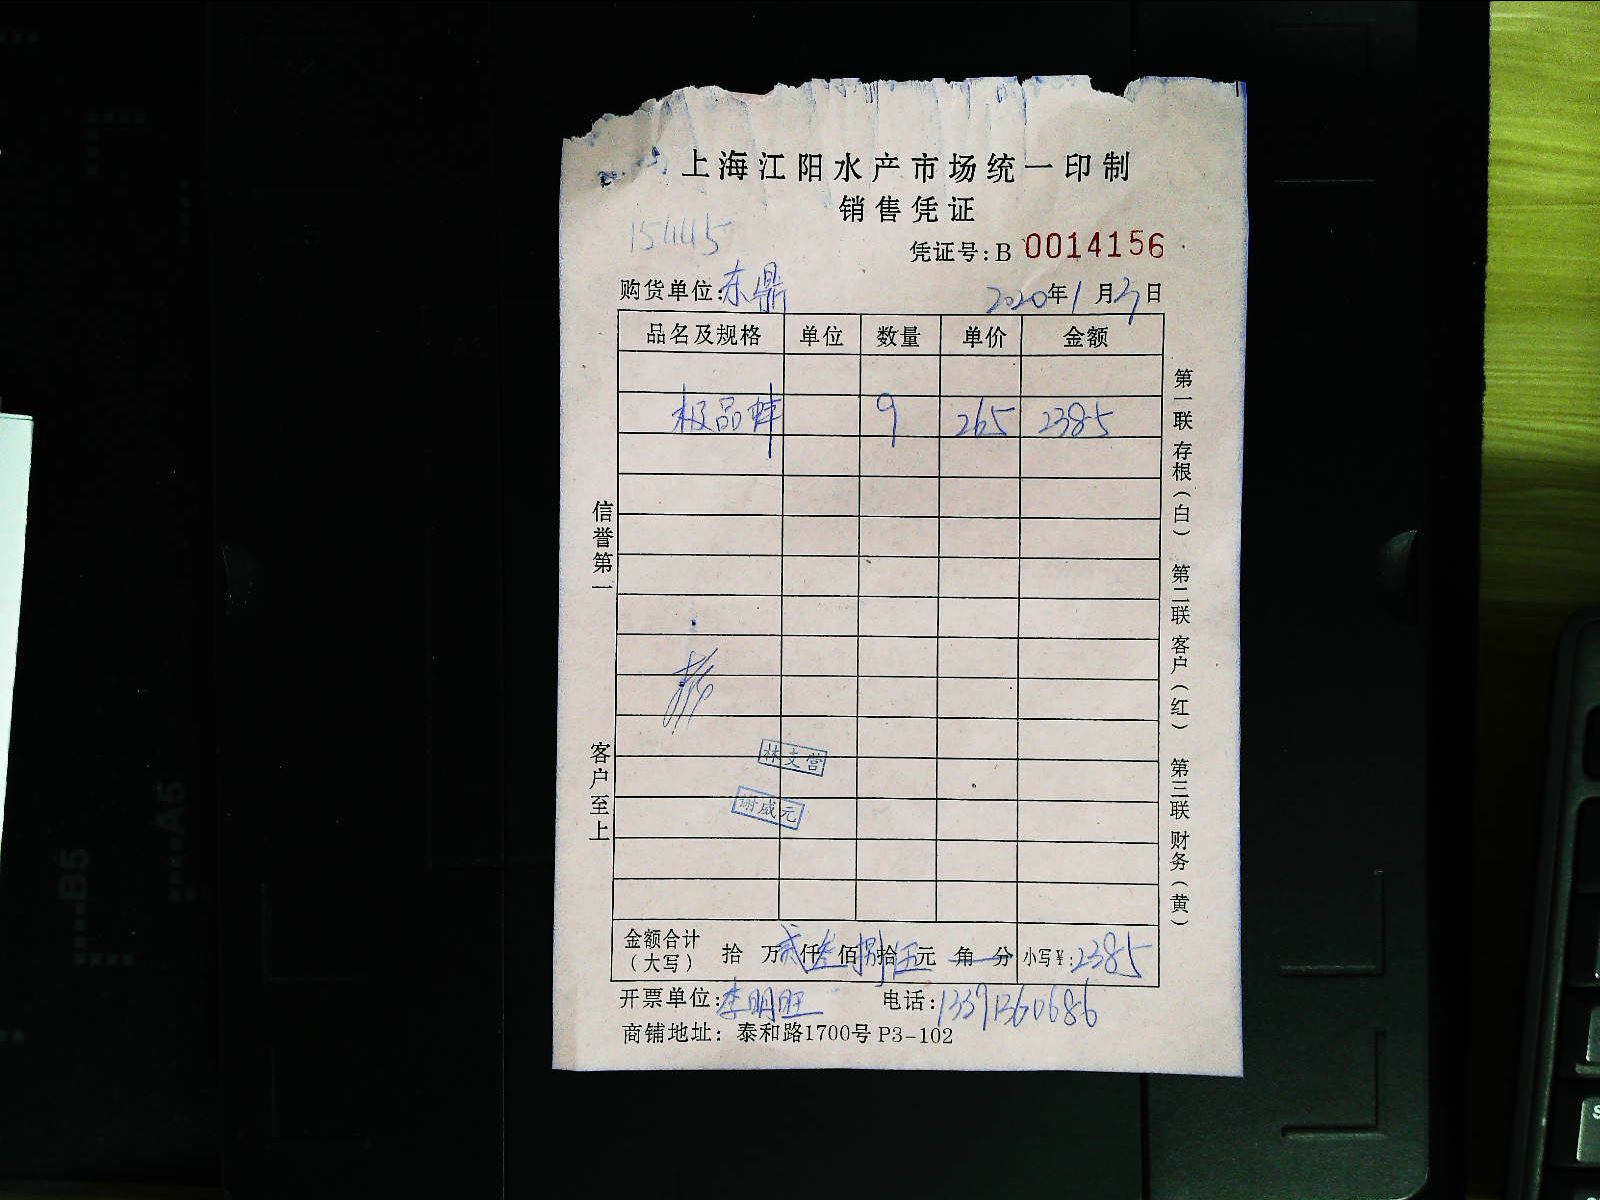 上海江阳水产市场统一印制
销售凭证
15445
凭证号:B 0014156
购货单位:东鼎 2020年1月21日
品名及规格 单位 数量 单价 金额
极品蚌 9 265 2385
信誉第一
客户至上
第一联 存根（白） 第二联 客户（红） 第三联 财务（黄）
林文营
谢威元
金额合计（大写） 拾 万 贰仟 叁佰 捌拾 伍元 角 分 小写¥:2385
开票单位:李明旺 电话:13391360686
商铺地址: 泰和路1700号 P3-102
B5
A5